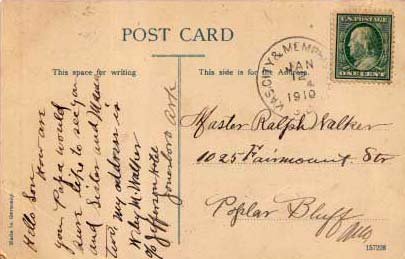 POST CARD
This space for writing
This side is for the Address.
U.S. POSTAGE
ONE CENT
KAS CITY & MEMPH
JAN
1910
Hello Son
how are
you Papa would
sure like to see you
and Sister and Mama
too, my address is
Wiley M. Walker
c/o Jefferson Hotel
Jonesboro Ark
Master Ralph Walker
1025 Fairmount Str
Poplar Bluff
Mo
Made in Germany
157208